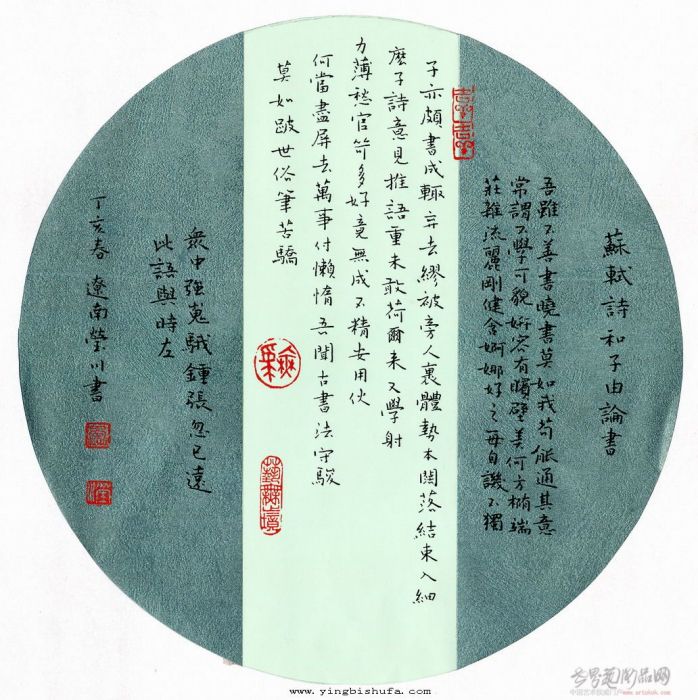 蘇軾詩和子由論書
吾雖不善書曉書莫如我苟能通其意
常謂不學可貌妍容有矉璧美何方橢端
莊雜流麗剛健含婀娜好之每自譏不獨
子亦頗書成輒弃去繆被旁人裏體勢本闊落結束入細
麽子詩意見推語重未敢荷爾来又學射
力薄愁官笴多好竟無成不精安用伙
何當盡屏去萬事付懶惰吾聞古書法守駿
莫如跛世俗筆苦驕
衆中強嵬騀鍾張忽已遠
此語與時左
丁亥春 遼南瑩川書
www.yingbishufa.com